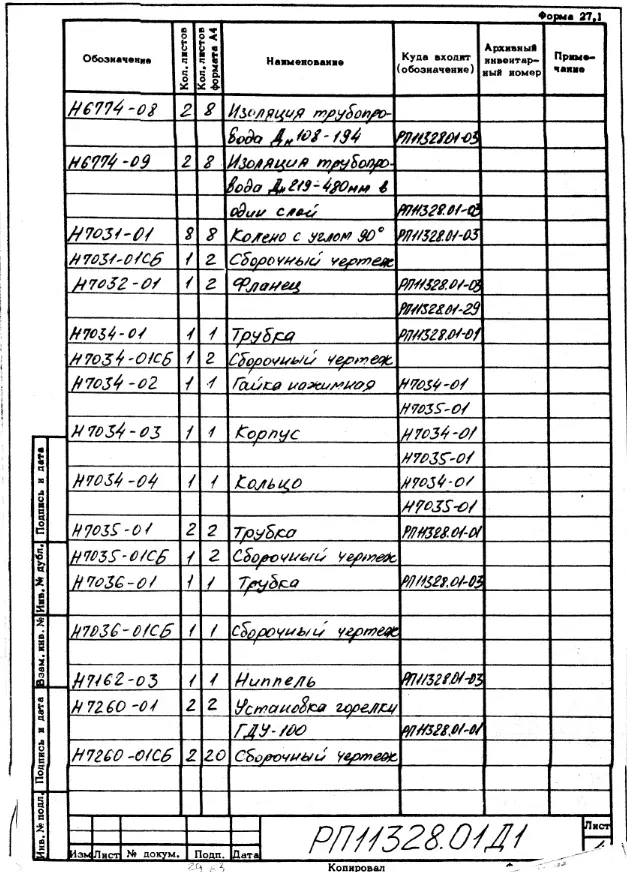 Форма 27,1
Обозначение Кол. листов Кол. листов формата А4 Наименование Куда входит (обозначение) Архивный инвентарный номер Примечание
Н6774-08 2 8 Изоляция трубопро-
вода Дн108-194 РП11328.01-03
Н6774-09 2 8 Изоляция трубопро-
вода Дн219-480мм в
один слой РП11328.01-03
Н7031-01 8 8 Колено с углом 90° РП11328.01-03
Н7031-01СБ 1 2 Сборочный чертеж
Н7032-01 1 2 Фланец РП11328.01-03
РП11328.01-29
Н7034-01 1 1 Трубка РП11328.01-01
Н7034-01СБ 1 2 Сборочный чертеж
Н7034-02 1 1 Гайка нажимная Н7034-01
Н7035-01
Н7034-03 1 1 Корпус Н7034-01
Н7035-01
Н7034-04 1 1 Кольцо Н7034-01
Н7035-01
Н7035-01 2 2 Трубка РП11328.01-01
Н7035-01СБ 1 2 Сборочный чертеж
Н7036-01 1 1 Трубка РП11328.01-03
Н7036-01СБ 1 1 Сборочный чертеж
Н7162-03 1 1 Ниппель РП11328.01-03
Н7260-01 2 2 Установка горелки
ГДУ-100 РП11328.01-01
Н7260-01СБ 2 20 Сборочный чертеж
Инв. № подл. Подпись и дата Взам. инв. № Инв. № дубл. Подпись и дата
РП11328.01Д1
Лист
Изм Лист № докум. Подп. Дата
Копировал